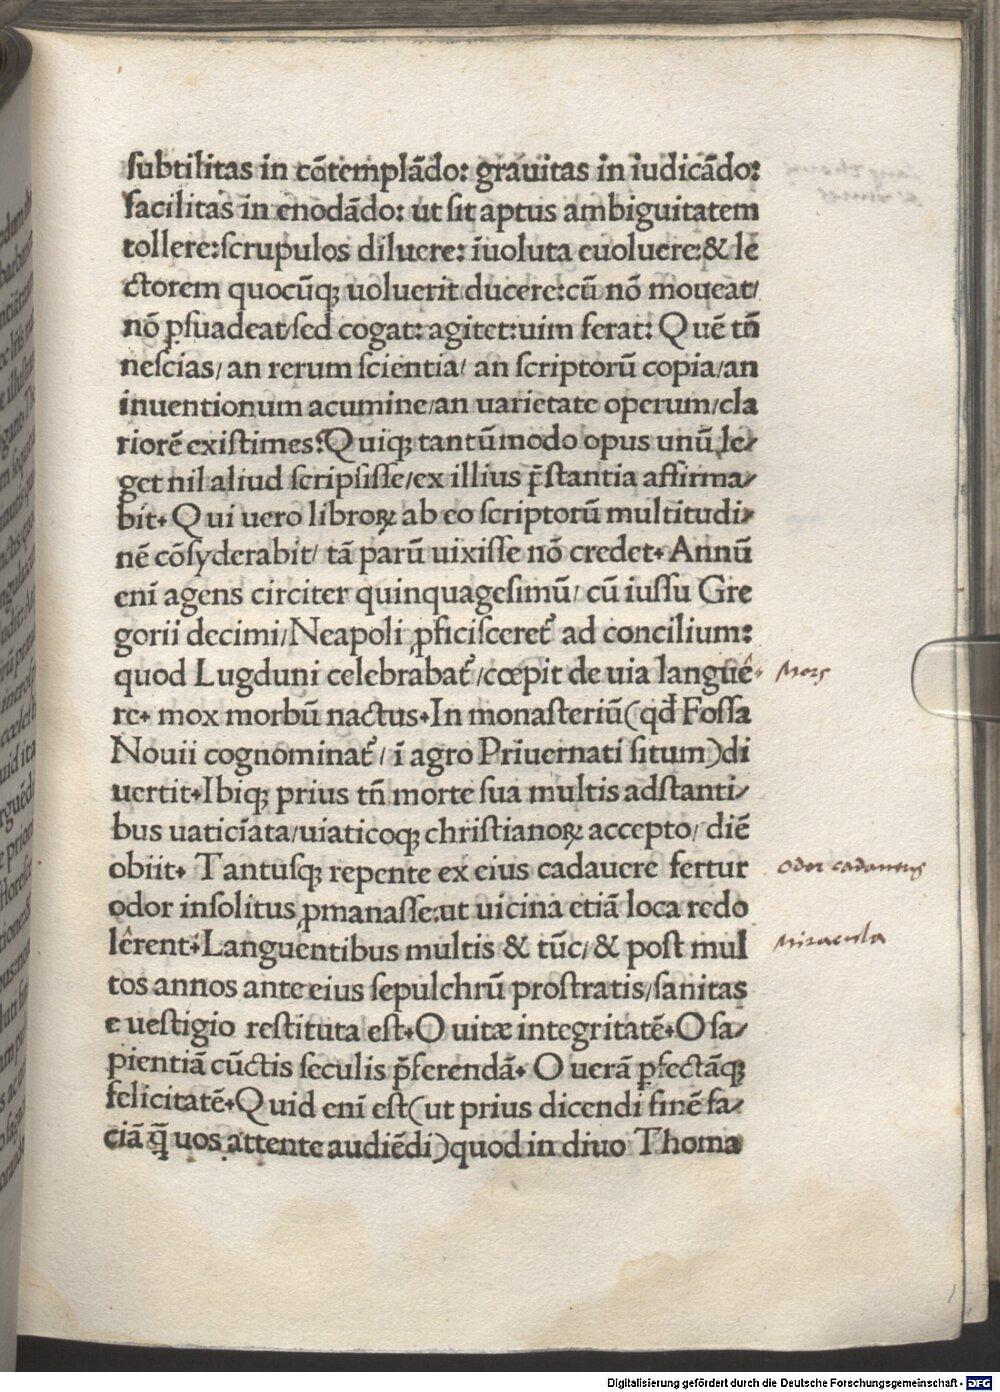 ſubtilitas in cõtemplãdo: grauitas in iudicãdo:
facilitas in enodãdo: ut ſit aptus ambiguitatem
tollere: ſcrupulos diluere: ĩuoluta euoluere: & le
ctorem quocũqꝫ uoluerit ducere: cũ nõ moueat/
nõ ꝑſuadeat/ſed cogat: agitet: uim ferat: Quẽ tñ
neſcias/ an rerum ſcientia/ an ſcriptorũ copia/an
inuentionum acumine/an uarietate operum/cla
riorẽ exiſtimes? Quiqꝫ tantũmodo opus unũ le/
get nil aliud ſcripſiſſe/ex illius p̃ſtantia affirma/
bit. Qui uero libroꝝ ab eo ſcriptorũ multitudi/
nẽ cõſyderabit/ tã parũ uixiſſe nõ credet. Annũ
eni agens circiter quinquageſimũ/ cũ iuſſu Gre
gorii decimi/Neapoli ꝓficiſceret᷑ ad concilium:
quod Lugduni celebrabat᷑/cœpit de uia languê/ Mors
re. mox morbũ nactus. In monaſteriũ(qđ Foſſa
Nouii cognominat᷑/ ĩ agro Priuernati ſitum)di
uertit. Ibiqꝫ prius tñ morte ſua multis adſtanti/
bus uaticĩata/uiaticoqꝫ chriſtianoꝝ accepto/ diẽ
obiit. Tantuſqꝫ repente ex eius cadauere fertur odor cadaueris
odor inſolitus ꝓmanaſſe: ut uicina etiã loca redo
lêrent. Languentibus multis & tũc/ & poſt mul Miracula
tos annos ante eius ſepulchrũ proſtratis/ſanitas
e ueſtigio reſtituta eſt. O uitæ integritatẽ. O ſa/
pientiã cũctis ſeculis p̃ferendã. O uerã ꝑfectãqꝫ
felicitatẽ. Quid eni eſt(ut prius dicendi finẽ fa/
ciã q̃ uos attente audiẽdi)quod in diuo Thoma
Digitalisierung gefördert durch die Deutsche Forschungsgemeinschaft - DFG